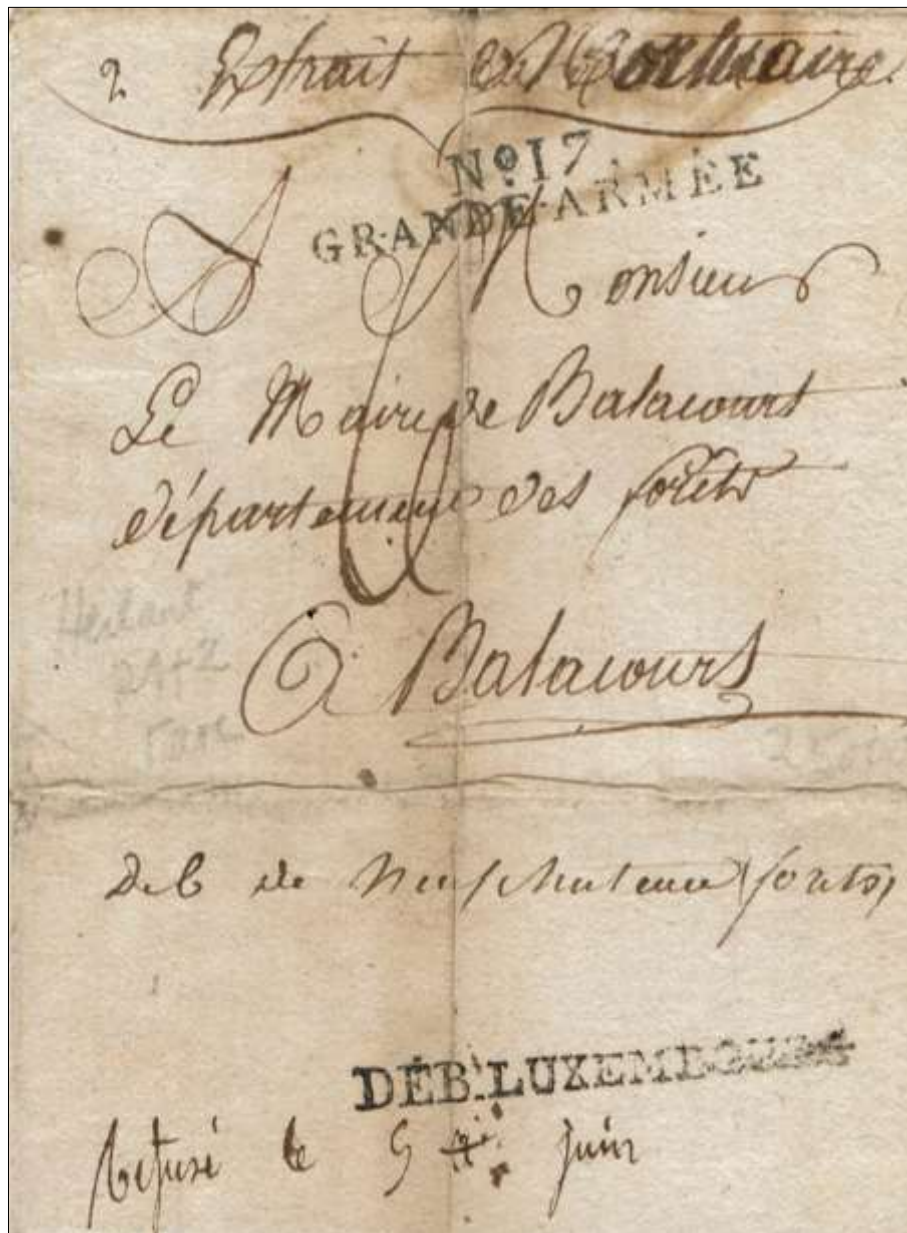 2 Extrait Mortuaire
Nº 17.
GRANDE-ARMÉE
A Monsieur
Le Maire de Balacourt
département des forêts
à Balacourt
Deb de Neufchateau (forets)
DÉB. LUXEMBOURG
Refusé le 5 juin